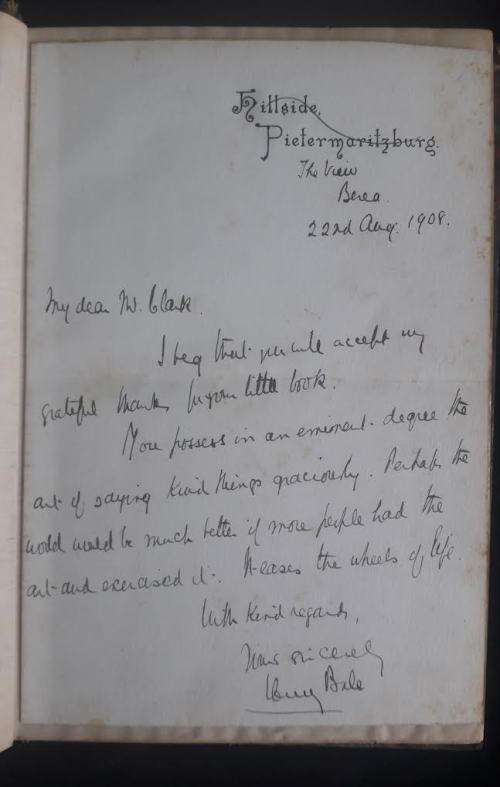 Hillside,
Pietermaritzburg.
The View
Berea.
22nd Aug. 1908.
My dear Mr. Clark.
I beg that you will accept my
grateful thanks for your little book.
You possess in an eminent degree the
art of saying kind things graciously. Perhaps the
world would be much better if more people had the
art and exercised it. It eases the wheels of life.
With kind regards,
Yours sincerely
Henry Bale